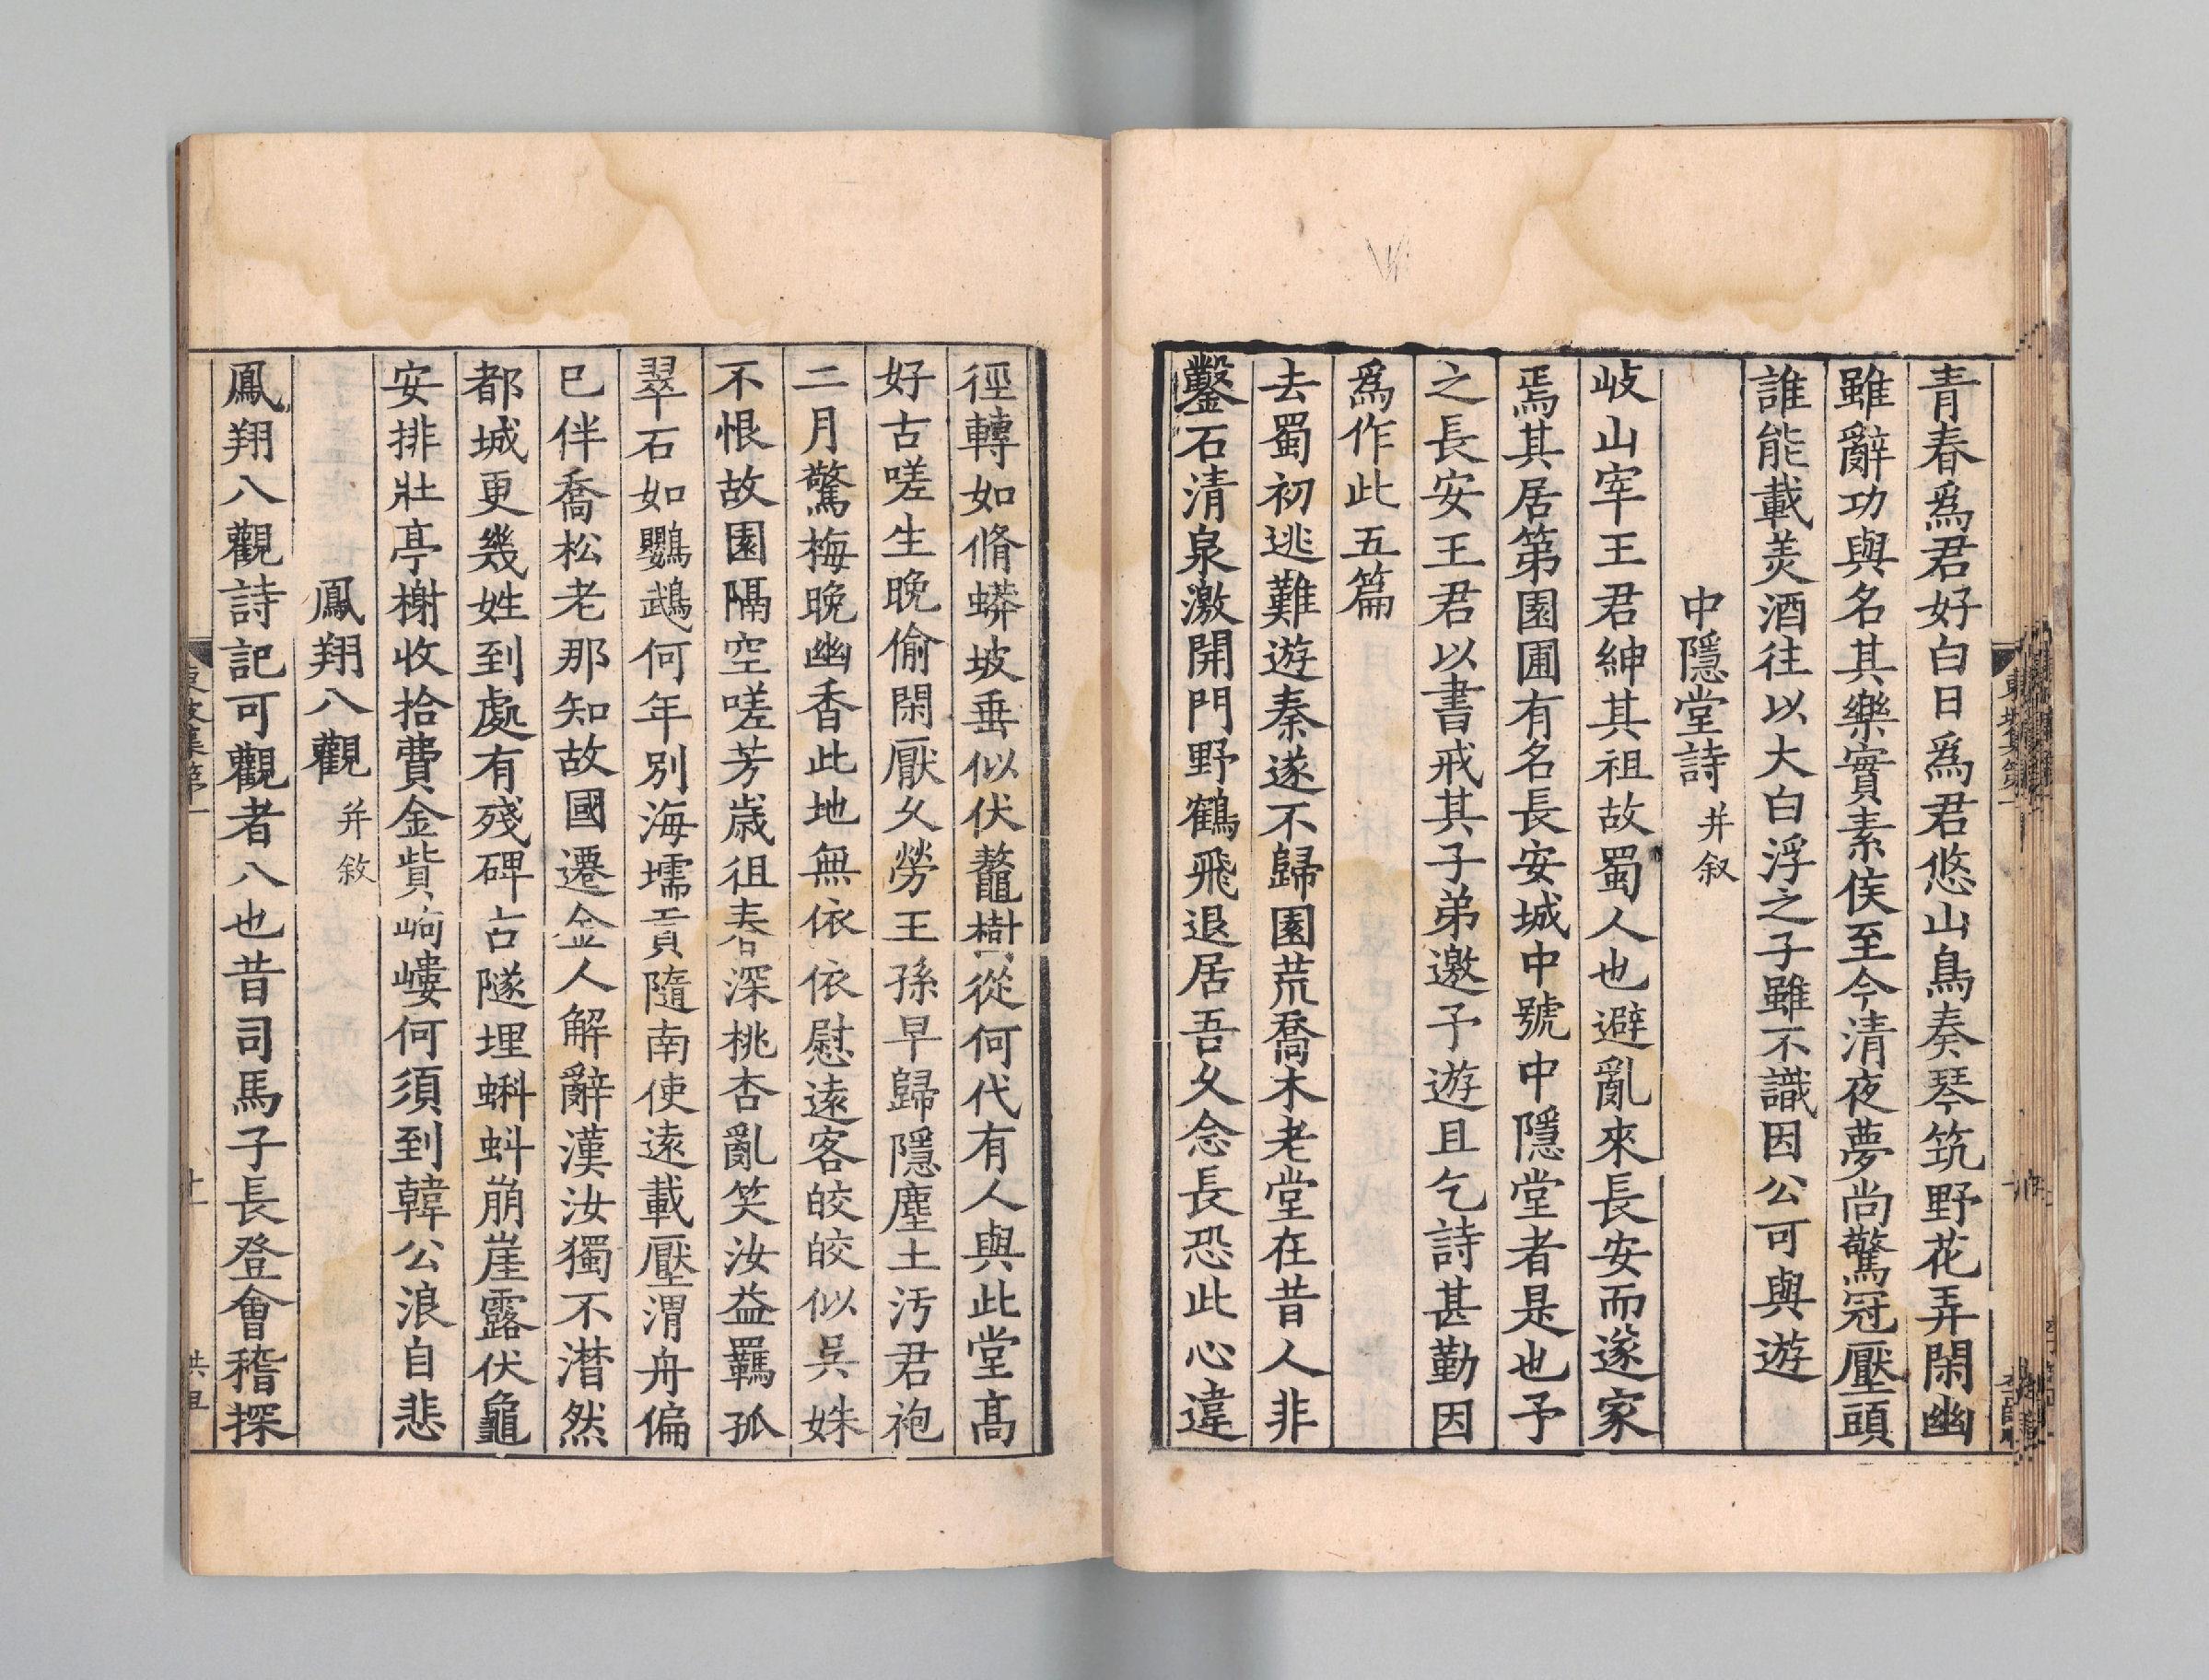 青春爲君好白日爲君悠山鳥奏琴筑野花弄閑幽
雖辭功與名其樂實素侯至今清夜夢尚驚冠壓頭
誰能載美酒往以大白浮之子雖不識因公可與遊
中隱堂詩 并叙
岐山宰王君紳其祖故蜀人也避亂來長安而遂家
焉其居第園圃有名長安城中號中隱堂者是也予
之長安王君以書戒其子弟邀予遊且乞詩甚勤因
爲作此五篇
去蜀初逃難遊秦遂不歸園荒喬木老堂在昔人非
鑿石清泉激開門野鶴飛退居吾久念長恐此心違
徑轉如脩蟒坡垂似伏鼇樹從何代有人與此堂高
好古嗟生晚偷閑厭久勞王孫早歸隱塵土汚君袍
二月驚梅晚幽香此地無依依慰遠客皎皎似吳姝
不恨故園隔空嗟芳歲徂春深桃杏亂笑汝益羈孤
翠石如鸚鵡何年別海壖貢隨南使遠載壓渭舟偏
已伴喬松老那知故國遷金人解辭漢汝獨不潸然
都城更幾姓到處有殘碑古隧埋蝌蚪崩崖露伏龜
安排壯亭榭收拾費金貲岣嶁何須到韓公浪自悲
鳳翔八觀 并敘
鳳翔八觀詩記可觀者八也昔司馬子長登會稽探
東坡集第一
十一